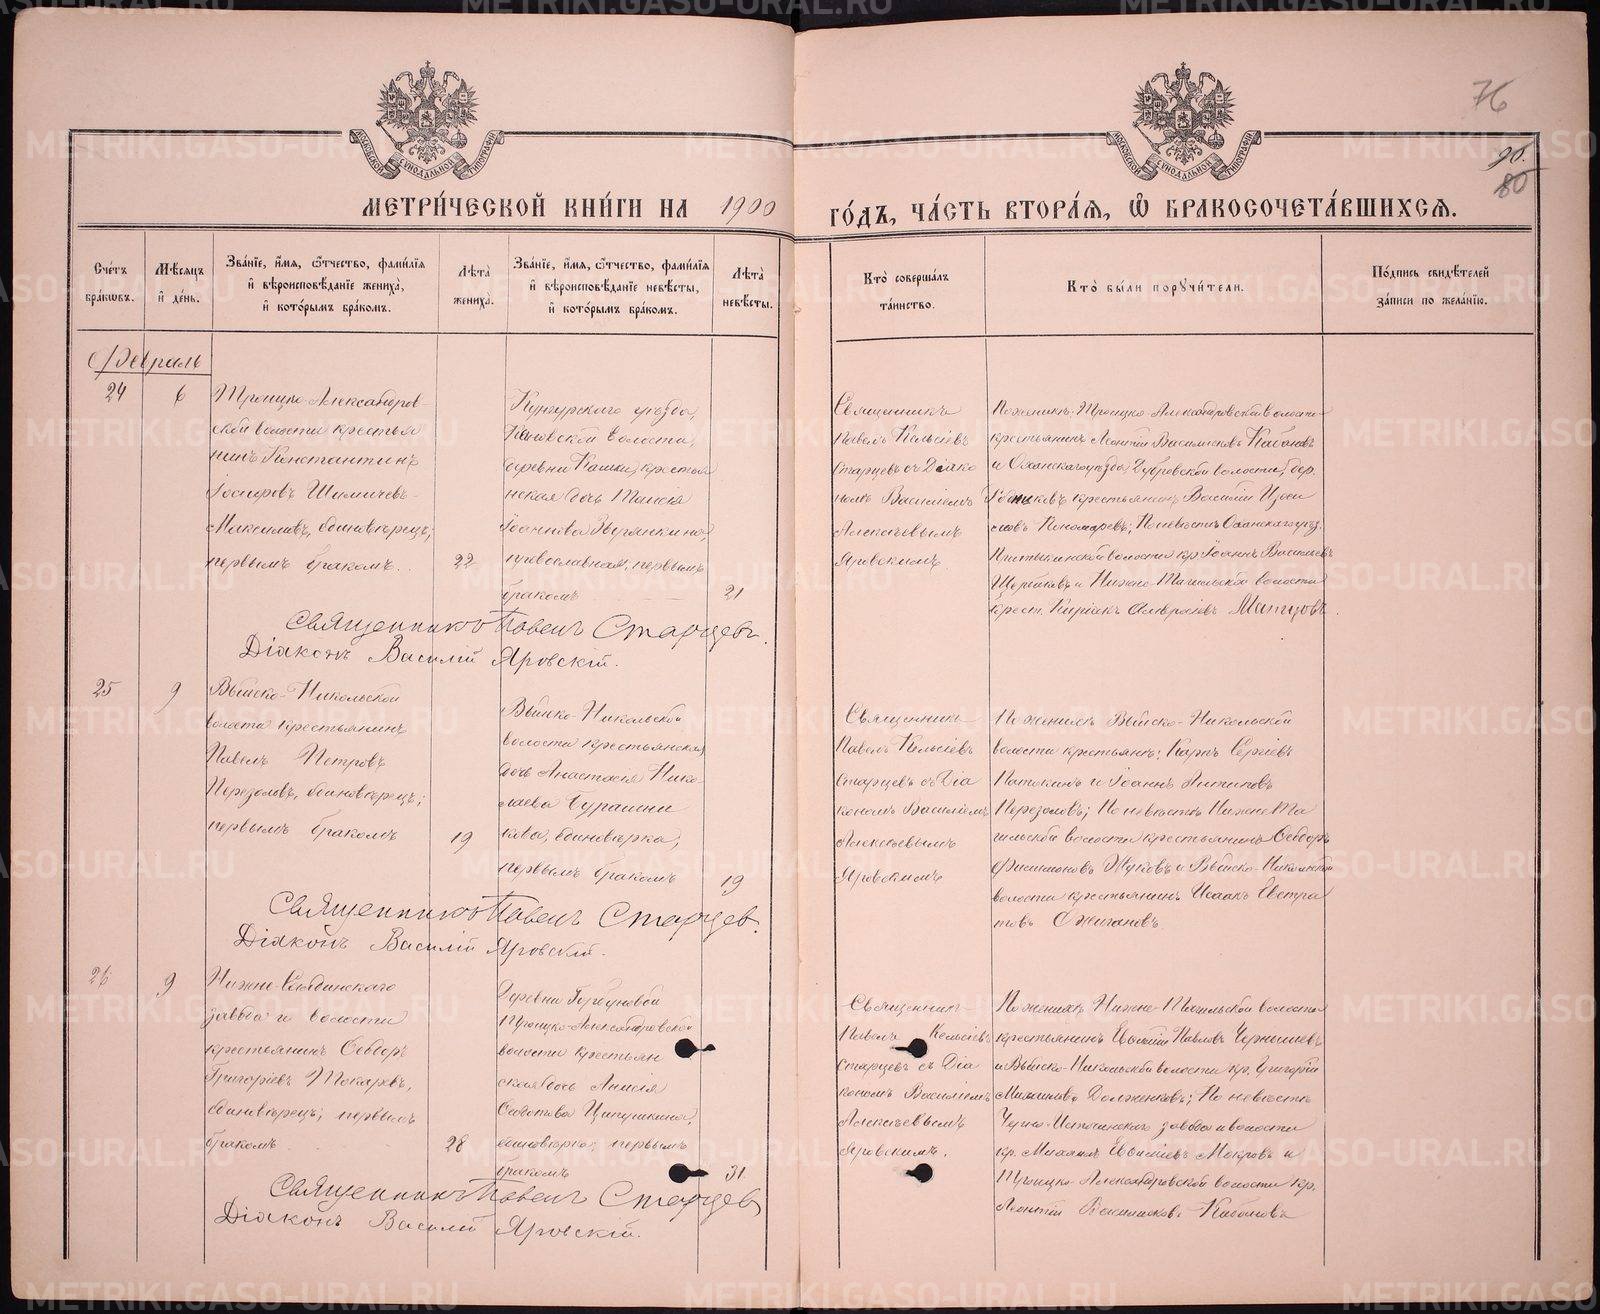 76
90.
80
МЕТРИ́ЧЕСКОЙ КНИ́ГИ НА 1900 ГО́ДЪ, ЧА́СТЬ ВТОРА́Я, Ѿ БРАКОСОЧЕТА́ВШИХСЯ.
Сче́тъ бра́кωвъ.
Мѣ́сяцъ и҆ де́нь.
Зва́нїе, и҆́мя, ѻ҆́тчество, фами́лїя
и҆ вѣроисповѣ́данїе жениха̀,
и҆ кото́рымъ бра́комъ.
Лѣта̀ жениха̀.
Зва́нїе, и҆́мя, ѻ҆́тчество, фами́лїя
и҆ вѣроисповѣ́данїе невѣ́сты,
и҆ кото́рымъ бра́комъ.
Лѣта̀ невѣ́сты.
Кто̀ соверша́лъ
та́инство.
Кто̀ бы́ли порꙋчи́тели.
По́дпись свидѣ́телей
за́писи по жела́нїю.
Февраль
24
6
Троицко-Александров-
ской волости крестья
нинъ Константинъ
Іосифовъ
Максимовъ, единовѣрецъ;
первымъ бракомъ.
22
Кунгурскаго уѣзда,
волости,
деревни крестьян
ская дочь Таисія
Іоаннова
православная, первымъ
бракомъ
21
Священникъ
Павелъ Кельсіевъ
Старцевъ съ Діако
номъ Василіемъ
Алексѣевымъ
Яровскимъ.
По женихѣ: Троицко-Александровской волости
крестьянинъ Леонтій Васильевъ Кабановъ
и Оханскаго уѣзда, Дубровской волости, дер.
крестьянинъ Василій
Пономаревъ; По невѣстѣ: Оханскаго уѣз.
волости кр. Іоаннъ Васильевъ
и Нижне-Тагильской волости
крест.
Священникъ Павелъ Старцевъ.
Діаконъ Василій Яровскій.
25
9
Выйско-Никольской
волости крестьянинъ
Павелъ Петровъ
Перезоловъ, единовѣрецъ;
первымъ бракомъ
19
Выйско-Никольской
волости крестьянская
дочь Анастасія Нико
лаева Бурашни
кова, единовѣрка,
первымъ бракомъ
19
Священникъ
Павелъ Кельсіевъ
Старцевъ съ Діа
кономъ Василіемъ
Алексѣевымъ
Яровскимъ
По женихѣ Выйско-Никольской
волости крестьяне: Карпъ Сергіевъ
и Іоаннъ Антиповъ
Перезоловъ; По невѣстѣ Нижне-Та
гильской волости крестьянинъ Ѳеодоръ
Жуковъ и Выйско-Никольской
волости крестьянинъ Исаакъ Евстра
товъ Ожигановъ.
Священникъ Павелъ Старцевъ.
Діаконъ Василій Яровскій.
26
9
Нижне-Салдинскаго
завода и волости
крестьянинъ Ѳеодоръ
Григоріевъ Токаревъ,
единовѣрецъ; первымъ
бракомъ
28
Деревни Горбуновой
Троицко-Александровской
волости крестьян
ская дочь Анисія
Савватова Ципушкина,
единовѣрка; первымъ
бракомъ
31.
Священникъ
Павелъ Кельсіевъ
Старцевъ съ Діа
кономъ Василіемъ
Алексѣевымъ
Яровскимъ.
По женихѣ Нижне-Тагильской волости
крестьянинъ Павловъ Чернышевъ
и Выйско-Никольской волости кр. Григорій
Долженковъ; По невѣстѣ
Черно-Источинскаго завода и волости
кр. Михаилъ Мокровъ и
Троицко-Александровской волости кр.
Леонтій Васильевъ Кабановъ
Священникъ Павелъ Старцевъ
Діаконъ Василій Яровскій.
METRIKI.GASO-URAL.RU